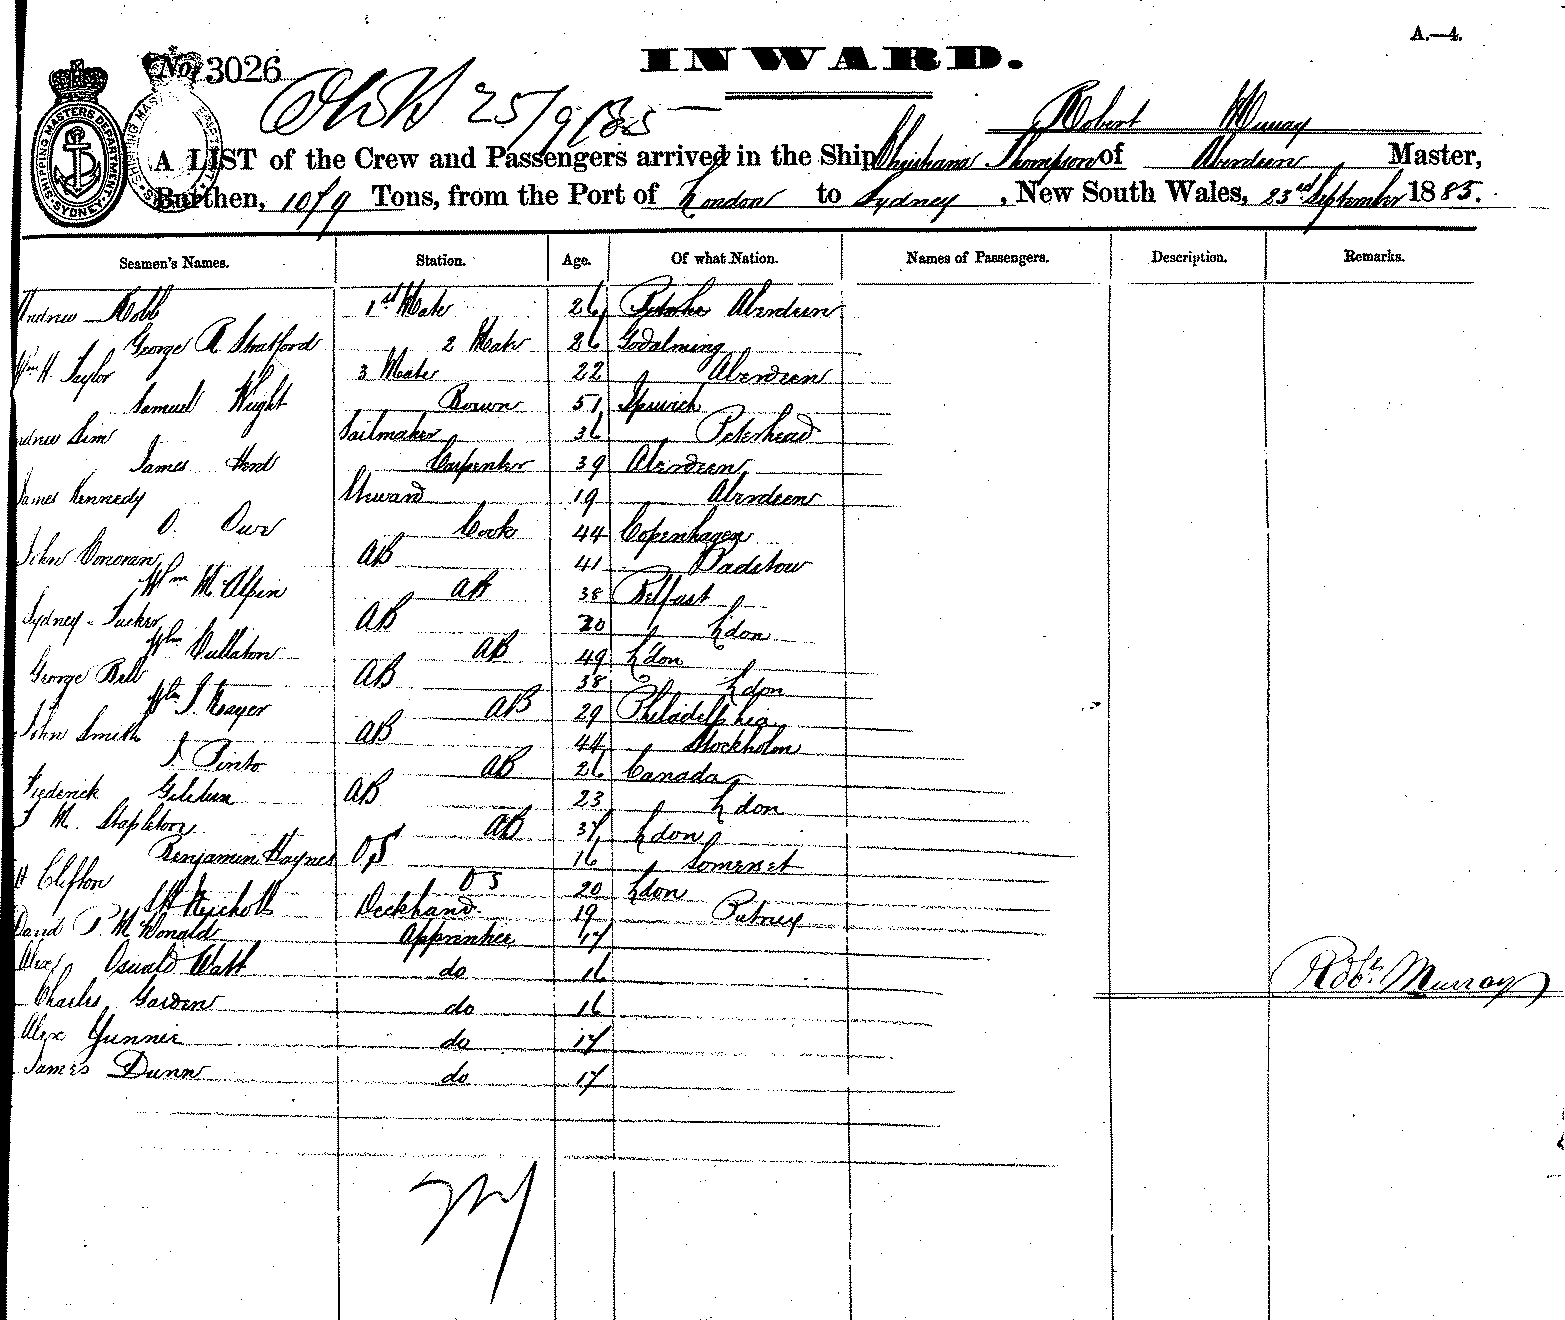 A.—4.
No. 3026
INWARD.
25/9/85
Robert Murray
A LIST of the Crew and Passengers arrived in the Ship Christiana Thompson of Aberdeen Master,
Burthen, 1079 Tons, from the Port of London to Sydney, New South Wales, 23rd September 1885.
SHIPPING MASTERS DEPARTMENT SYDNEY
Seamen's Names. Station. Age. Of what Nation. Names of Passengers. Description. Remarks.
Andrew Robb 1st Mate 26 Aberdeen
George R Stratford 2 Mate 26 Godalming
Wm H. Taylor 3 Mate 22 Aberdeen
Samuel Wight Bosun 51 Ipswich
Andrew Sim Sailmaker 36 Peterhead
James Herd Carpenter 39 Aberdeen
James Kennedy Steward 19 Aberdeen
O. Cook 44 Copenhagen
John Donovan AB 41 Padstow
Wm McAlpin AB 38 Belfast
Sydney Tucker AB 20 Ldon
Wm Cullaton AB 49 Ldon
George Bell AB 38 Ldon
Wm J. AB 29 Philadelphia
John Smith AB 44 Stockholm
J Pinto AB 26 Canada
Frederick AB 23 Ldon
F M. Stapleton AB 37 Ldon
Benjamin Haynes OS 16 Somerset
H Clifton OS 20 Ldon
Deckhand 19 Putney
David P. McDonald Apprentice 17
Alex Oswald Watt do 16
Charles Garden do 16
Alex do 17
James Dunn do 17
Robt. Murray